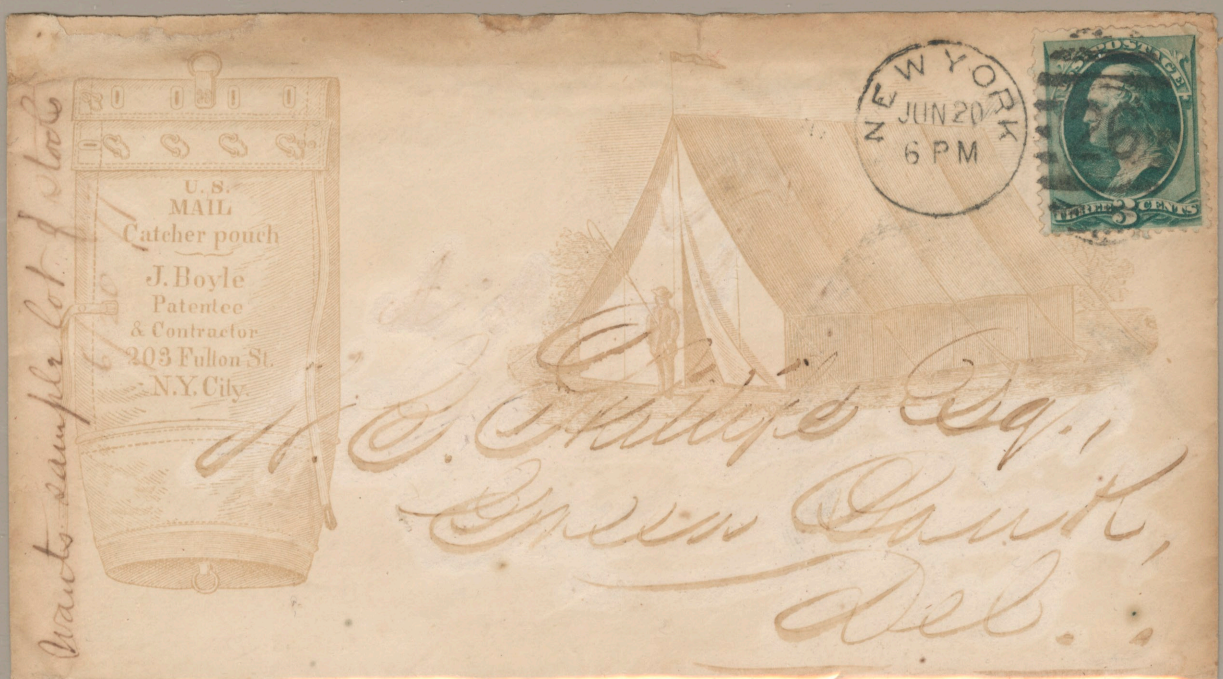 wants sample lot of stock
U. S.
MAIL
Catcher pouch
J. Boyle
Patentee
& Contractor
203 Fulton St.
N.Y. City.
NEW YORK
JUN 20
6 PM
U.S. POSTAGE
THREE 3 CENTS
Phillips Esq.,
Green Bank,
Del.